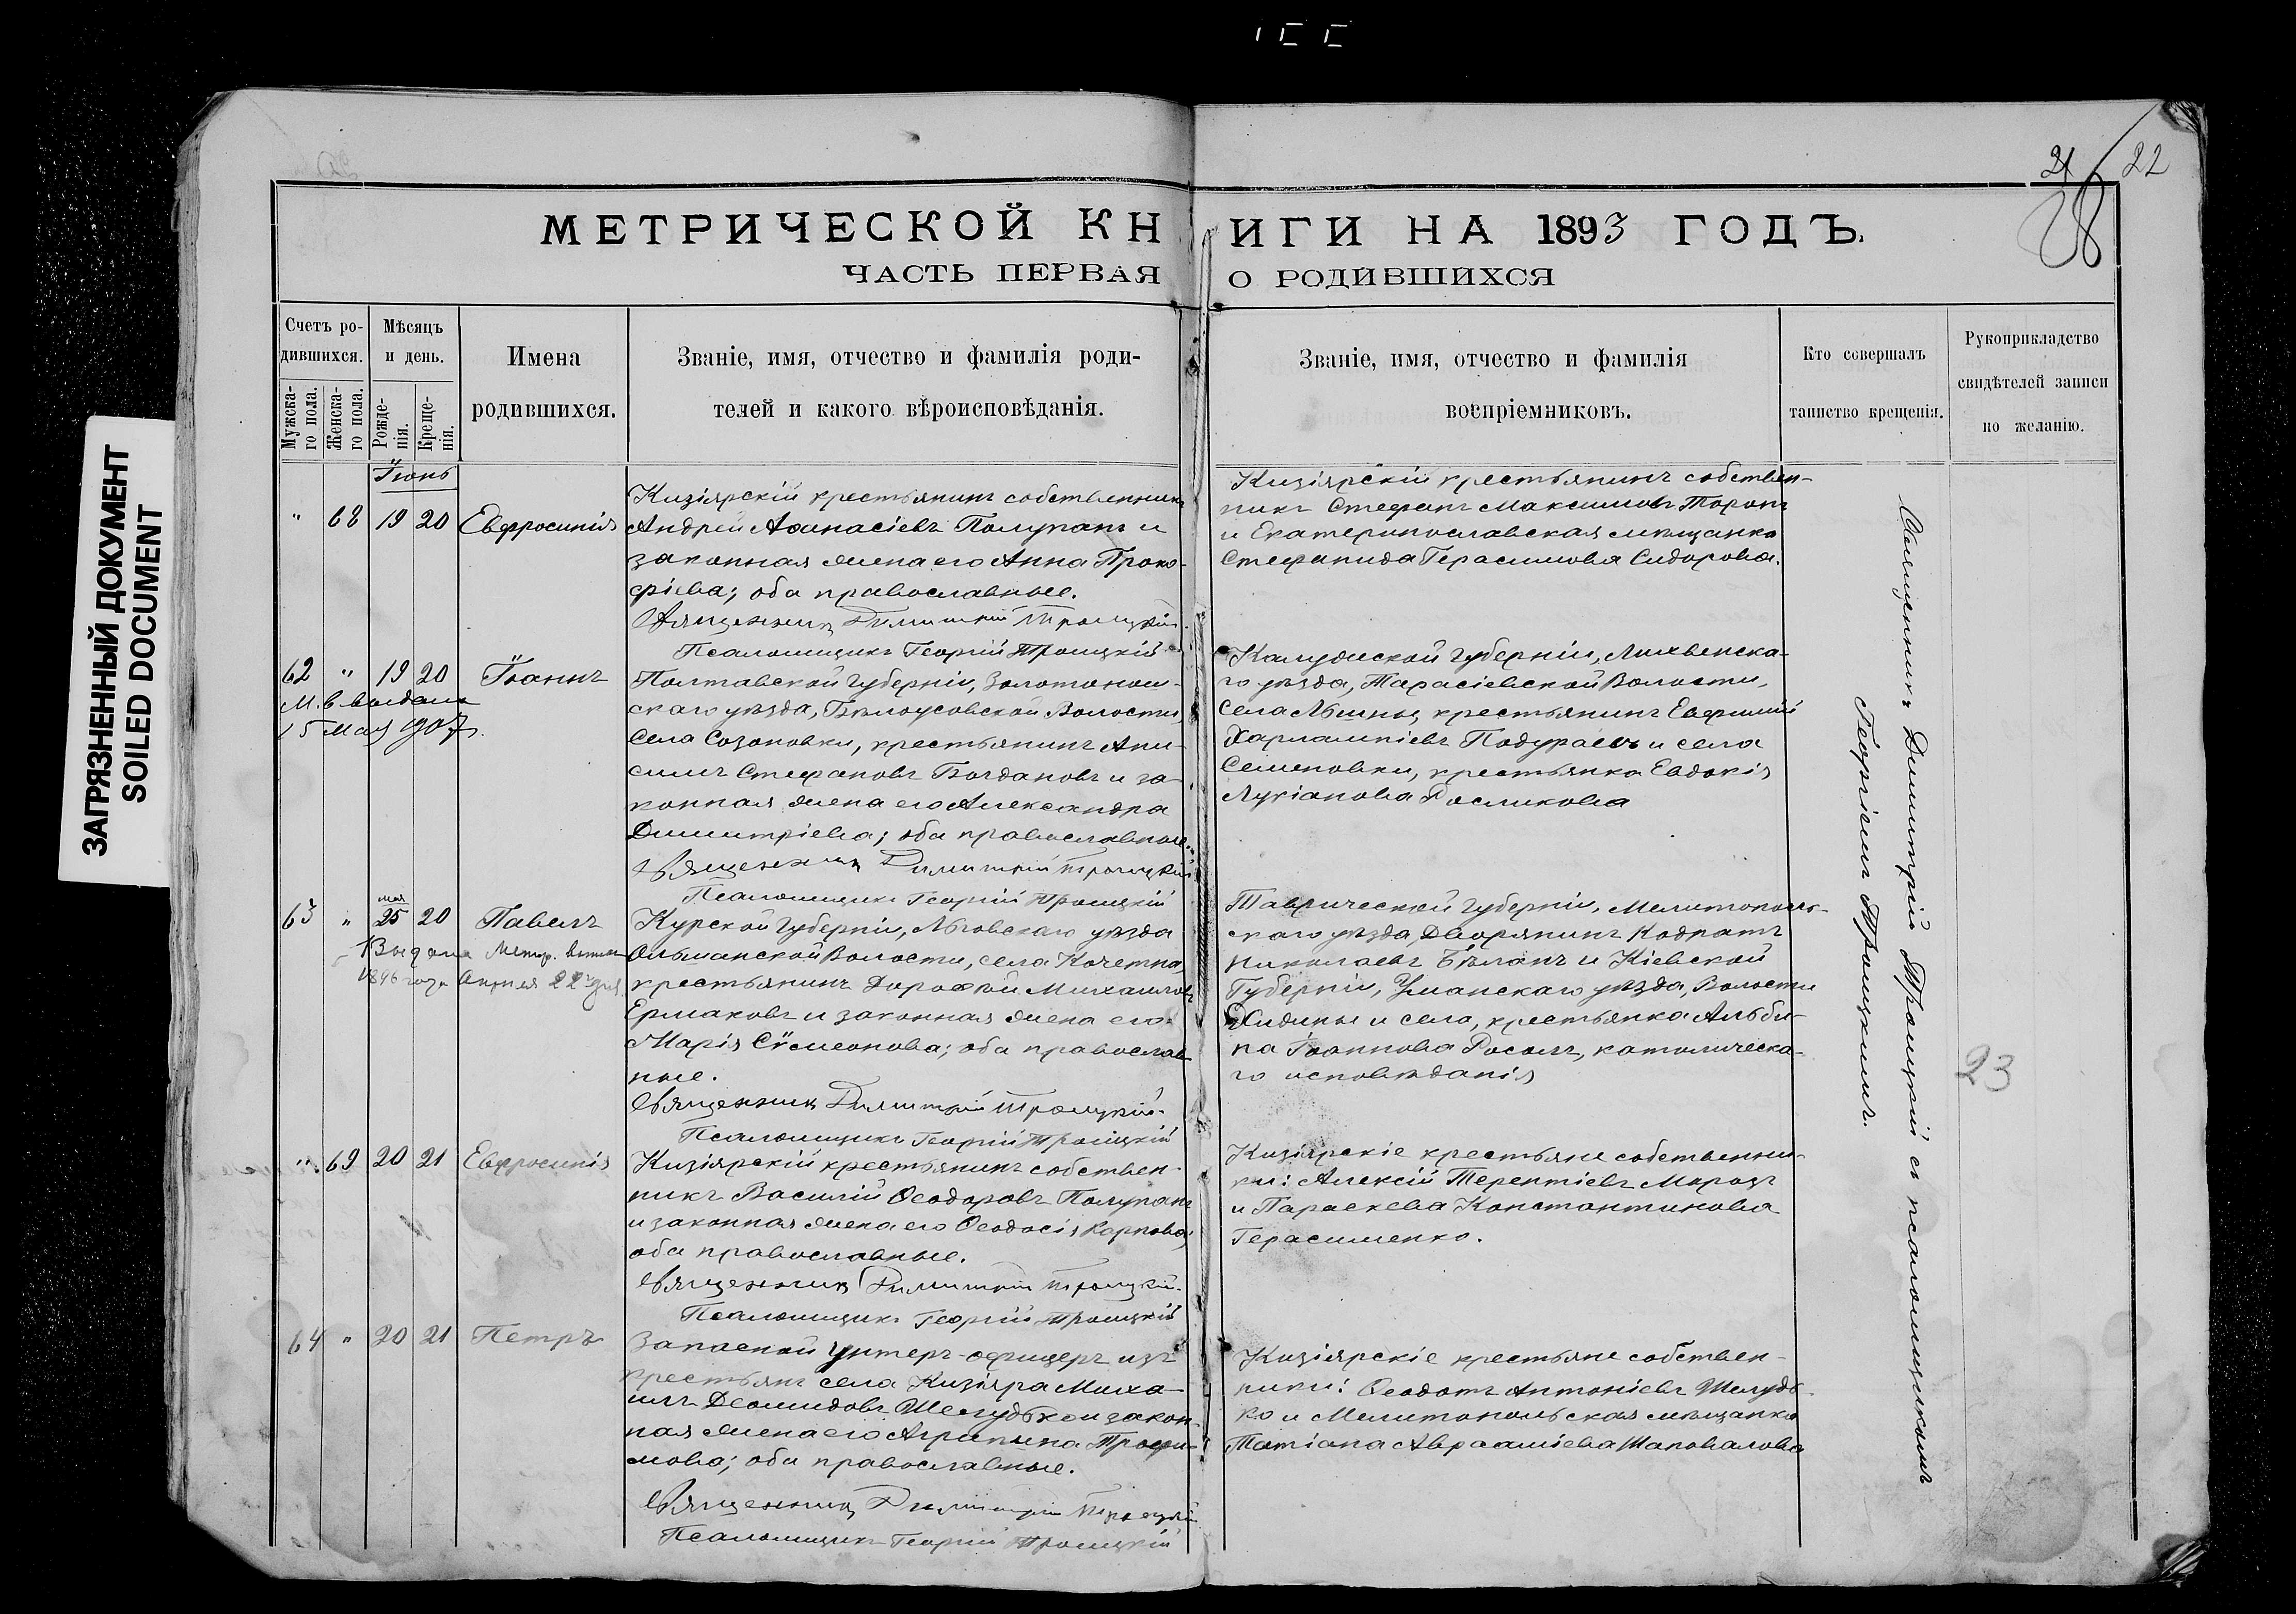 21 22
28
МЕТРИЧЕСКОЙ КНИГИ НА 1893 ГОДЪ.
ЧАСТЬ ПЕРВАЯ О РОДИВШИХСЯ
ЗАГРЯЗНЕННЫЙ ДОКУМЕНТ
SOILED DOCUMENT
Счетъ ро-
дившихся.
Мужска-
го пола.
Женска-
го пола.
Мѣсяцъ
и день.
Рожде-
нія.
Креще-
нія.
Имена
родившихся.
Званіе, имя, отчество и фамилія роди-
телей и какого вѣроисповѣданія.
Званіе, имя, отчество и фамилія
воспріемниковъ.
Кто совершалъ
таинство крещенія.
Рукоприкладство
свидѣтелей записи
по желанію.
Іюнь
" 68 19 20 Евфросинія
Кизіярскій крестьянинъ собственникъ
Андрей Аѳанасіевъ Полупанъ и
законная жена его Анна Проко-
фіева; оба православные.
Священникъ Димитрій Троицкій
Псаломщикъ Георгій Троицкій
Кизіярскій крестьянинъ собствен-
никъ Стефанъ Максимовъ Торопъ
и Екатеринославская мѣщанка
Стефанида Герасимова Сидорова.
62 " 19 20 Іоаннъ
М. в. выдана
15 Мая 1907 г.
Полтавской Губерніи, Золотонош-
скаго уѣзда, Бѣлоусовской Волости,
Села Созоновки, крестьянинъ Ани-
симъ Стефановъ Богдановъ и за-
конная жена его Александра
Димитріева; оба православные.
Священникъ Димитрій Троицкій
Псаломщикъ Георгій Троицкій
Калужской Губерніи, Лихвенска-
го уѣзда, Тарасіевской Волости,
Села крестьянинъ Евфимій
Харлампіевъ Подураевъ и села
Семеновки, крестьянка Евдокія
Лукіанова Рослякова
63 " мая 25 20 Павелъ
Выдана Метр. выпись
1896 года Апреля 22 дня
Курской Губерніи, Льговскаго уѣзда
Ольшанской Волости, села Кочетна,
крестьянинъ Дорофей Михаиловъ
Ермаковъ и законная жена его
Марія Сѵмеонова; оба православ-
ные.
Священникъ Димитрій Троицкій.
Псаломщикъ Георгій Троицкій
Таврической Губерніи, Мелитополь-
скаго уѣзда, Дворянинъ Кодратъ
Николаевъ Бѣланъ и Кіевской
Губерніи, Уманскаго уѣзда, Волости
и села, крестьянка Альби-
на Іоаннова Росолъ, католическа-
го исповѣданія
23
" 69 20 21 Евфросинія
Кизіярскій крестьянинъ собствен-
никъ Василій Ѳеодоровъ Полупанъ
и законная жена его Ѳеодосія Карпова;
оба православные.
Священникъ Димитрій Троицкій.
Псаломщикъ Георгій Троицкій
Кизіярскіе крестьяне собственни-
ки: Алексій Терентіевъ Морозъ
и Параскева Константинова
Герасименко.
64 " 20 21 Петръ
Запасной Унтеръ-офицеръ изъ
крестьянъ села Кизіяра Миха-
илъ Деомидовъ Шелудько и закон-
ная жена его Агрипина Трофи-
мова; оба православные.
Священникъ Димитрій Троицкій
Псаломщикъ Георгій Троицкій
Кизіярскіе крестьяне собствен-
ники: Ѳеодотъ Антоніевъ Шелудь-
ко и Мелитопольская мѣщанка
Татіана Авраамиева Шаповалова
Священникъ Димитрій Троицкій съ псаломщикомъ
Георгіемъ Троицкимъ.